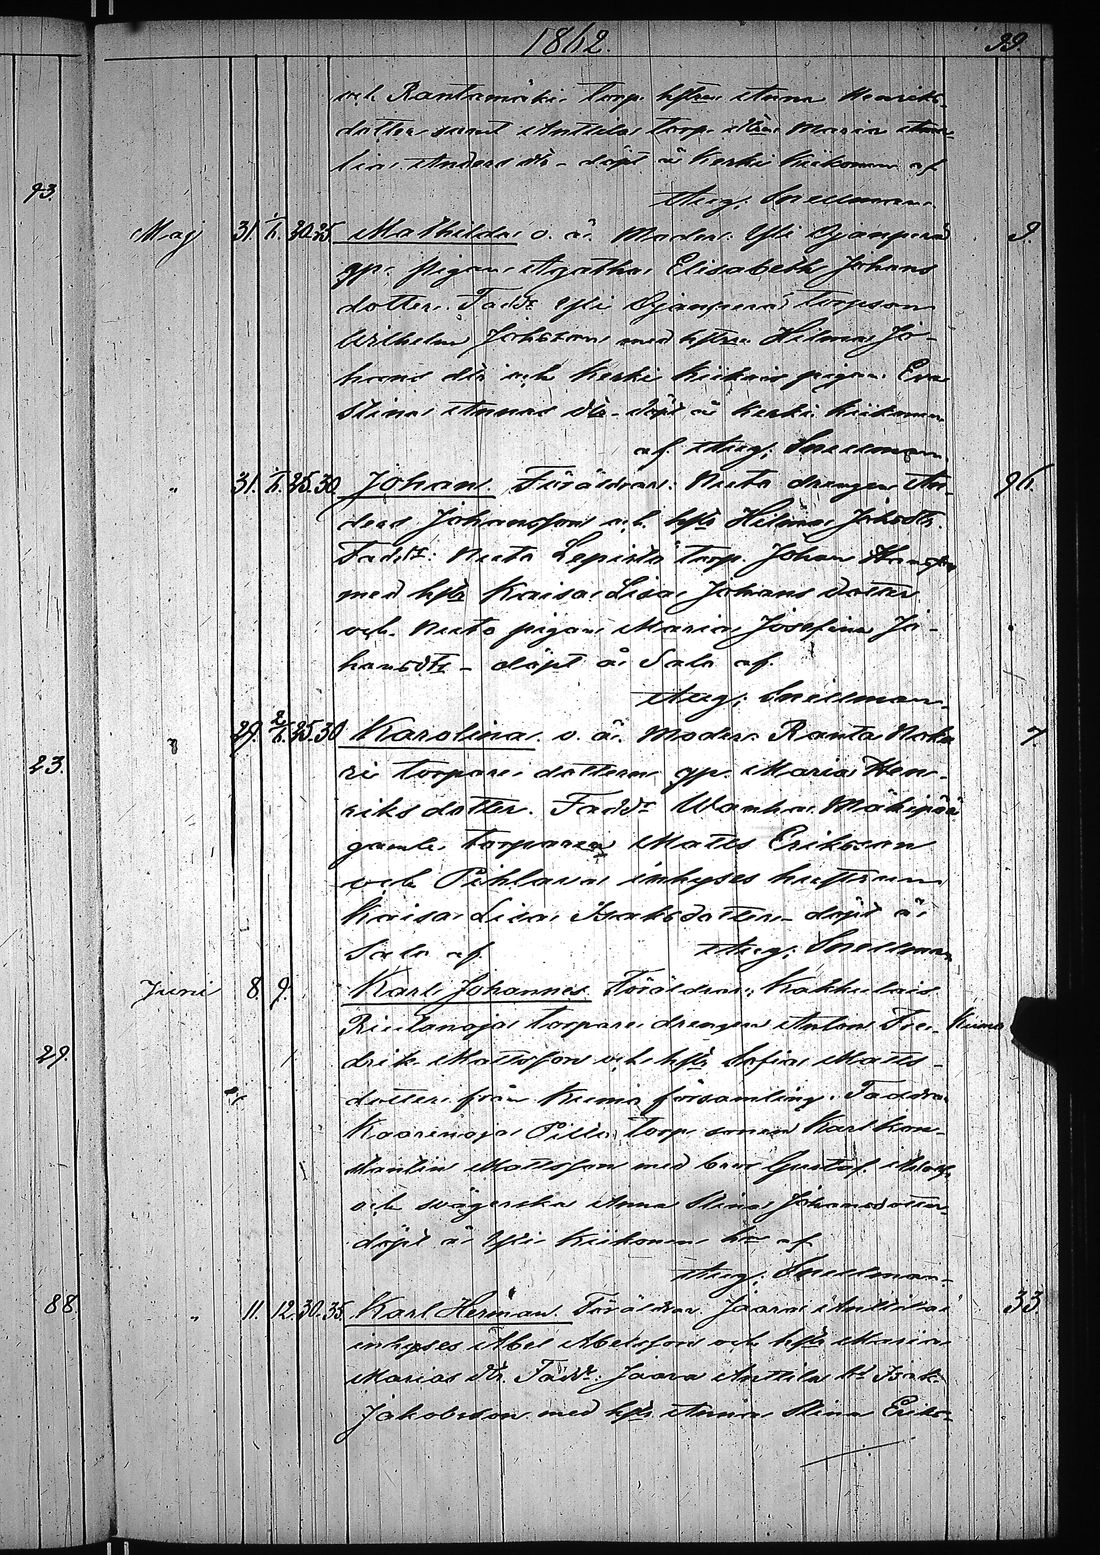 1862.
99.
och Rantamäki torp. hstru Anna Henriks-
dotter samt Anttila torp. dtr Maria Ama-
lia Anders dtr - döpt å Kerki Kiikonen af
93.
Aug: Snellman.
Maj 31. 1/6. 20.25 Mathilda o. ä. Moder: Yli Ojanperä 9.
gp. pigan Agatha Elisabeth Johans
dotter. Fadd: Yli Ojanperä torpson
Wilhelm Johsson med hstru Hilma Jo-
hans dtr och Kerki Kiikais pigan Eva
Stina Annas dtr - döpt å Kerki Kiikonen
af Aug: Snellman
" 31. 1/6. 25.30 Johan. Föräldrar: Neeto drengen An- 96.
ders Johansson och hstr Hilma Johsdtr.
Fadd: Neeto Lepistö torp. Johan
med hstr Kaisa Lisa Johans dotter
och Neeto pigan Maria Josefina Jo-
hansdtr - döpt å Salo af
Aug: Snellman.
" 29. 2/6. 25.30 Karolina. o. ä. Moder: Ranta 7.
23.
ri torpare dottern gp. Maria Hen-
riks dotter. Fadd: Wanha Mäkipää
gamle torparen Matts Eriksson
och Pihlava inhyses hustrun
Kaisa Lisa Isaksdotter - döpt å
Salo af Aug: Snellman
Juni 8. 9. Karl Johannes Föräldrar: Kakkulais
Riutanoja torpare drengen Anton Fre- Kiimo
29.
drik Mattsson och hstr Sofia Matts-
dotter från Keemi församling. Faddr.
Kaarenoja Pille torp. sonen Karl Kon-
stantin Mattsson med bror Gustaf Adolf
och svägerska Anna Stina Johansdotter
döpt å Yli Kiikonen hn af
Aug: Snellman.
88.
" 11. 12. 30.35. Karl Herman. Föräldrar. Jaara Anttila 33.
inhyses Abel Abelsson och hstr Maria
Marias dtr. Fadd: Jaara Anttila bd Isak
Jakobsson med hstr Anna Stina Eriks-